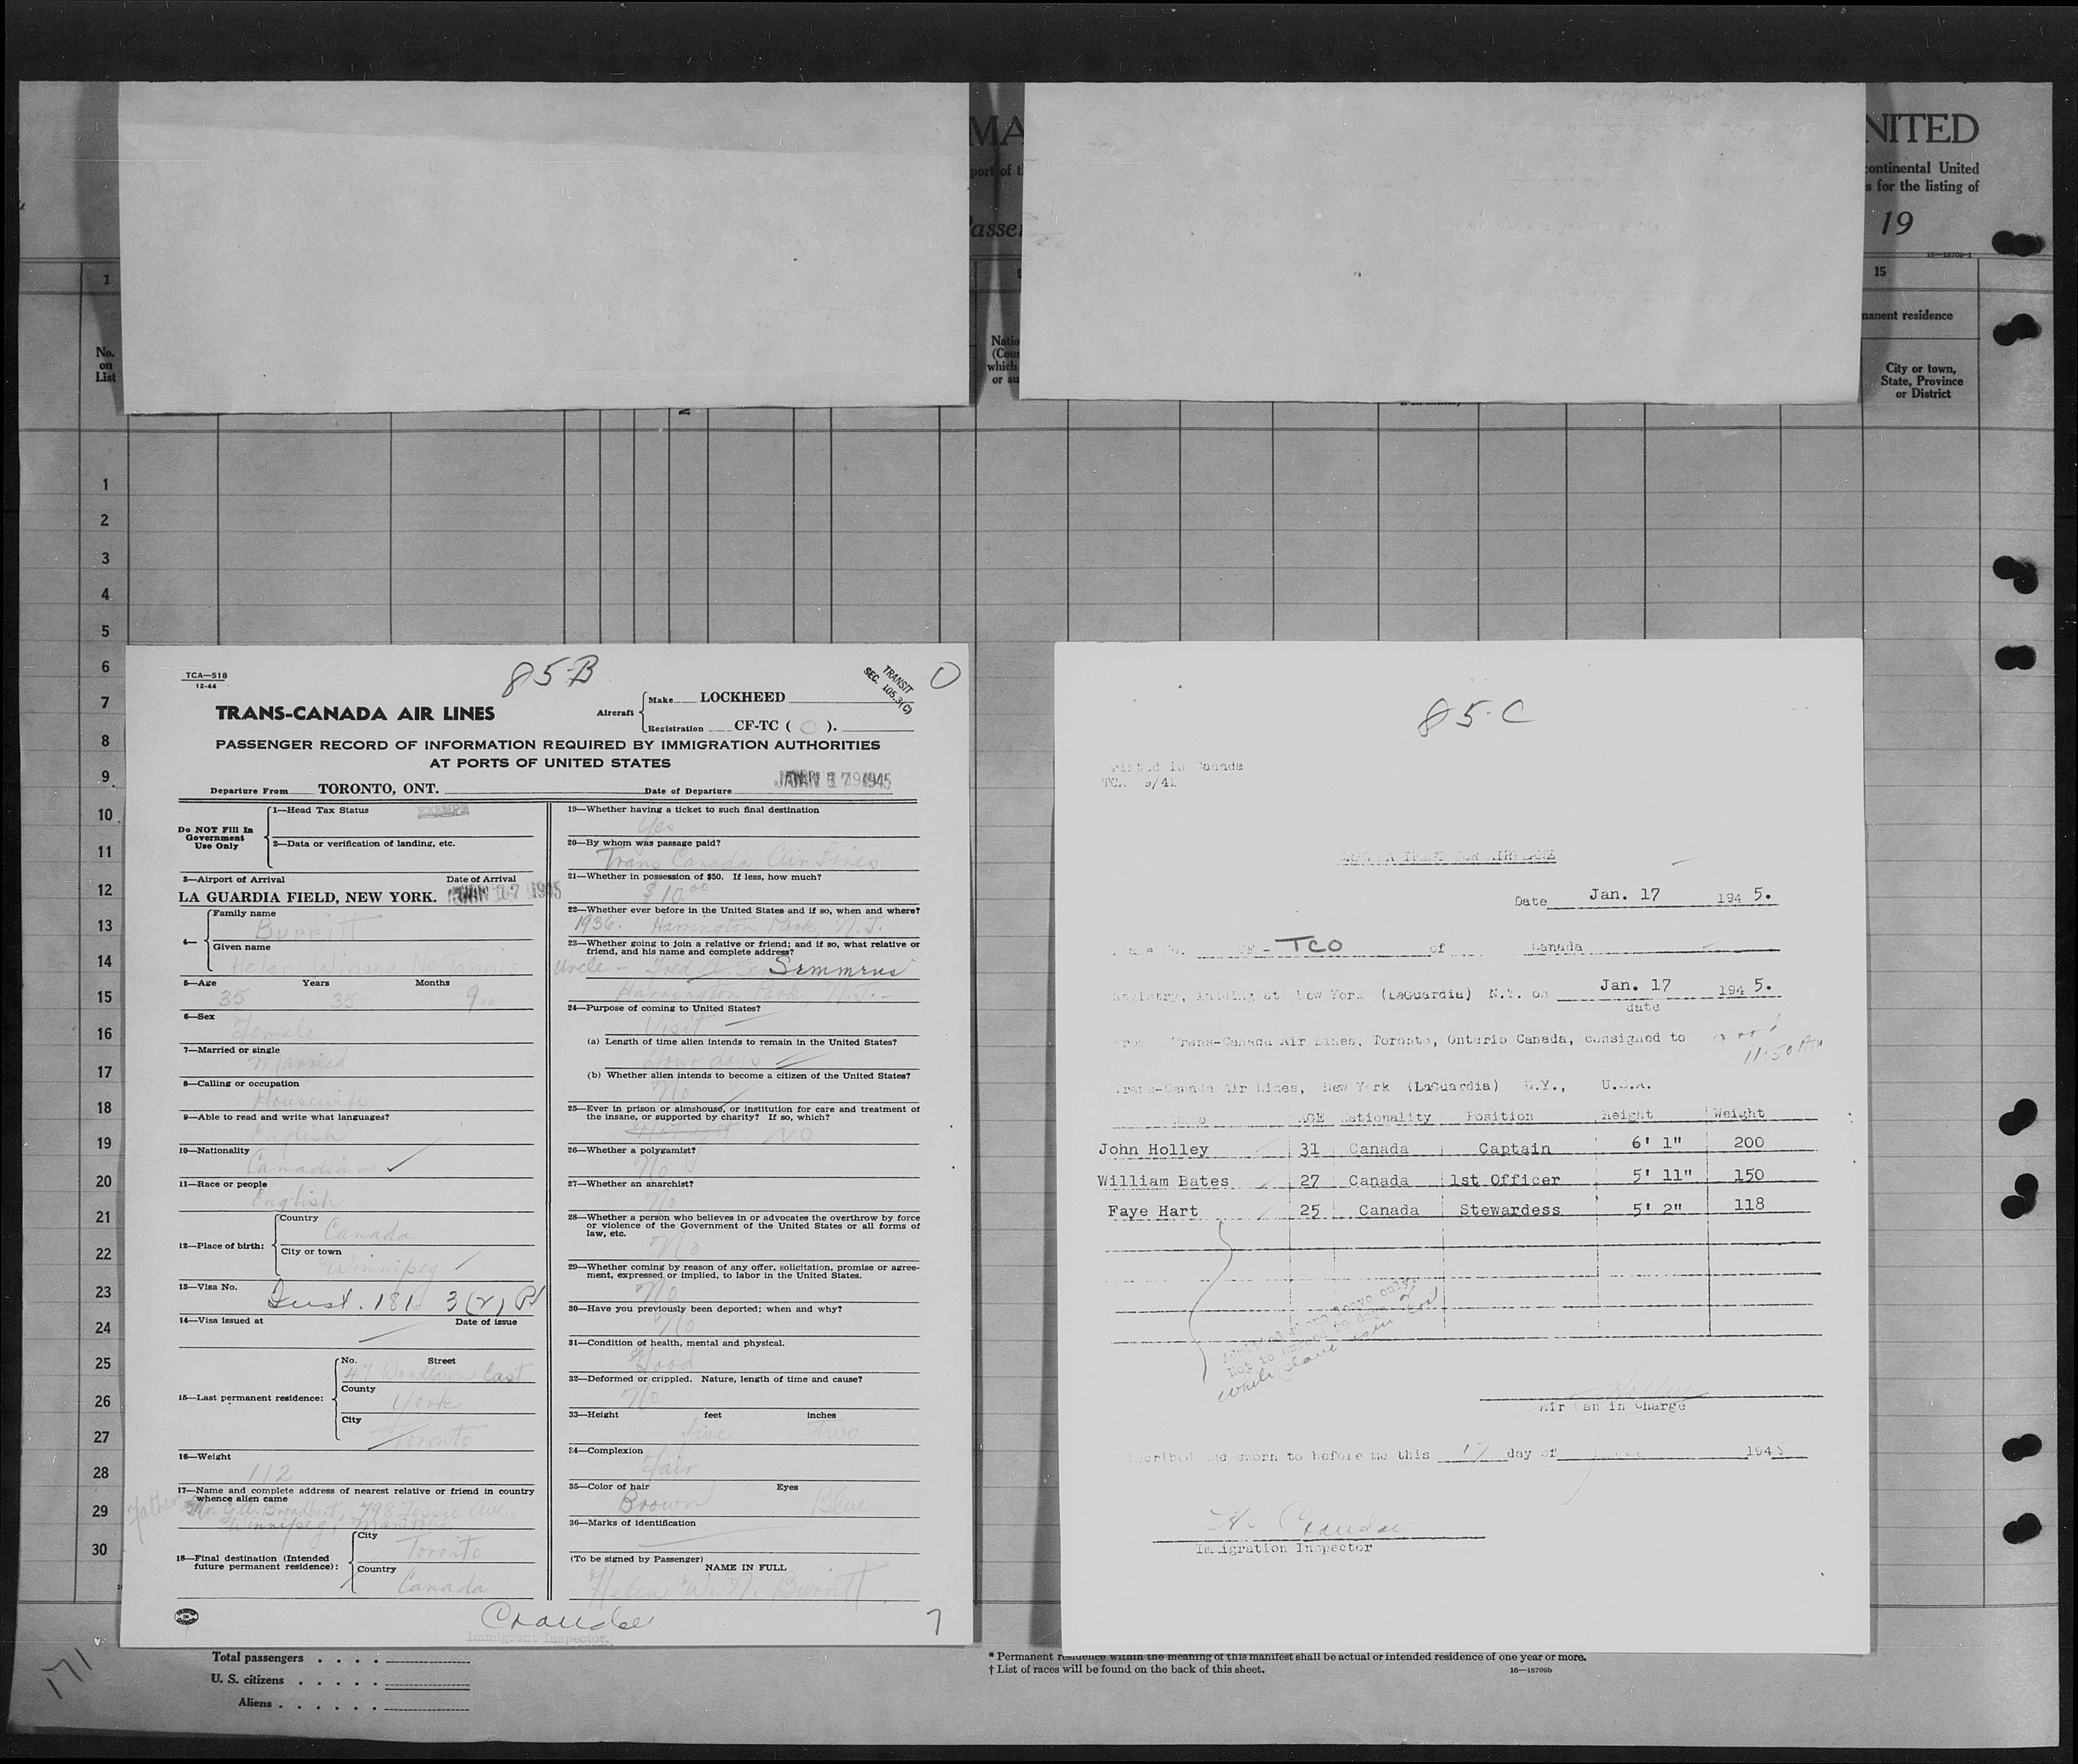 MA
NITED
port of t
continental United
s for the listing of
Passen
19
16—18709-1
1
15
manent residence
No.
on
List
Natio
(Coun
which
or su
City or town,
State, Province
or District
1
2
3
4
5
6
7
8
9
10
11
12
13
14
15
16
17
18
19
20
21
22
23
24
25
26
27
28
29
30
TCA—518
12-44
85-B
TRANSIT
SEC. 105.3(C)
O
TRANS-CANADA AIR LINES
Aircraft
Make LOCKHEED
Registration CF-TC ( O ).
PASSENGER RECORD OF INFORMATION REQUIRED BY IMMIGRATION AUTHORITIES
AT PORTS OF UNITED STATES
Departure From TORONTO, ONT. Date of Departure JAN 17 1945
Do NOT Fill In
Government
Use Only
1—Head Tax Status EXEMPT
2—Data or verification of landing, etc.
3—Airport of Arrival Date of Arrival
LA GUARDIA FIELD, NEW YORK. JAN 17 1945
4—
Family name
Burritt
Given name
Helen Winona
5—Age Years Months
35 35 9
6—Sex
Female
7—Married or single
Married
8—Calling or occupation
Housewife
9—Able to read and write what languages?
English
10—Nationality
Canadian
11—Race or people
English
12—Place of birth:
Country
Canada
City or town
Winnipeg
13—Visa No.
181 3(2)
14—Visa issued at Date of issue
15—Last permanent residence:
No. Street
47 Woodlawn East
County
York
City
Toronto
16—Weight
112
17—Name and complete address of nearest relative or friend in country
whence alien came
Father Mr. G.A. Broadbent, 798 Jessie Ave.,
Winnipeg, Manitoba
18—Final destination (Intended
future permanent residence):
City
Toronto
Country
Canada
19—Whether having a ticket to such final destination
Yes
20—By whom was passage paid?
Trans Canada Air Lines
21—Whether in possession of $50. If less, how much?
$10.00
22—Whether ever before in the United States and if so, when and where?
1936. Harrington Park, N.J.
23—Whether going to join a relative or friend; and if so, what relative or
friend, and his name and complete address?
Uncle — Fred
Harrington Park N.J.
24—Purpose of coming to United States?
Visit
(a) Length of time alien intends to remain in the United States?
Four days
(b) Whether alien intends to become a citizen of the United States?
No
25—Ever in prison or almshouse, or institution for care and treatment of
the insane, or supported by charity? If so, which?
NO
26—Whether a polygamist?
No
27—Whether an anarchist?
No
28—Whether a person who believes in or advocates the overthrow by force
or violence of the Government of the United States or all forms of
law, etc.
No
29—Whether coming by reason of any offer, solicitation, promise or agree-
ment, expressed or implied, to labor in the United States.
No
30—Have you previously been deported; when and why?
No
31—Condition of health, mental and physical.
Good
32—Deformed or crippled. Nature, length of time and cause?
No
33—Height feet inches
five two
34—Complexion
Fair
35—Color of hair Eyes
Brown Blue
36—Marks of identification
(To be signed by Passenger)
NAME IN FULL
Helen W. N. Burritt
Immigrant Inspector.
7
171
Total passengers
U. S. citizens
Aliens
85-C
Printed in Canada
TCA 9/41
FOR AIRPLANE
Date Jan. 17 194 5.
CF - TCO of Canada
Registry, landing at New York (LaGuardia) N.Y. on Jan. 17 194 5.
date
From Trans-Canada Air Lines, Toronto, Ontario Canada, consigned to
11:50 AM
Trans-Canada Air Lines, New York (LaGuardia) N.Y., U.S.A.
Name AGE Nationality Position Height Weight
John Holley 31 Canada Captain 6' 1" 200
William Bates 27 Canada 1st Officer 5' 11" 150
Faye Hart 25 Canada Stewardess 5' 2" 118
Admitted shore leave only,
Not to exceed 29 days
while plane in port
Air Man in Charge
Subscribed and sworn to before me this 17 day of 1945
Immigration Inspector
* Permanent residence within the meaning of this manifest shall be actual or intended residence of one year or more.
† List of races will be found on the back of this sheet.
16—18709b